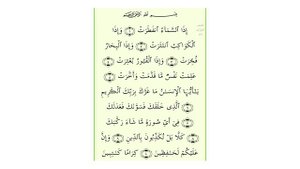 بِسْمِ ٱللَّهِ ٱلرَّحْمَٰنِ ٱلرَّحِيمِ
إِذَا ٱلسَّمَآءُ ٱنفَطَرَتْ ۝ وَإِذَا
ٱلْكَوَاكِبُ ٱنتَثَرَتْ ۝ وَإِذَا ٱلْبِحَارُ
فُجِّرَتْ ۝ وَإِذَا ٱلْقُبُورُ بُعْثِرَتْ ۝
عَلِمَتْ نَفْسٌ مَّا قَدَّمَتْ وَأَخَّرَتْ ۝
يَٰٓأَيُّهَا ٱلْإِنسَٰنُ مَا غَرَّكَ بِرَبِّكَ ٱلْكَرِيمِ
۝ ٱلَّذِى خَلَقَكَ فَسَوَّىٰكَ فَعَدَلَكَ
۝ فِىٓ أَىِّ صُورَةٍ مَّا شَآءَ رَكَّبَكَ
۝ كَلَّا بَلْ تُكَذِّبُونَ بِٱلدِّينِ ۝ وَإِنَّ
عَلَيْكُمْ لَحَٰفِظِينَ ۝ كِرَامًا كَٰتِبِينَ